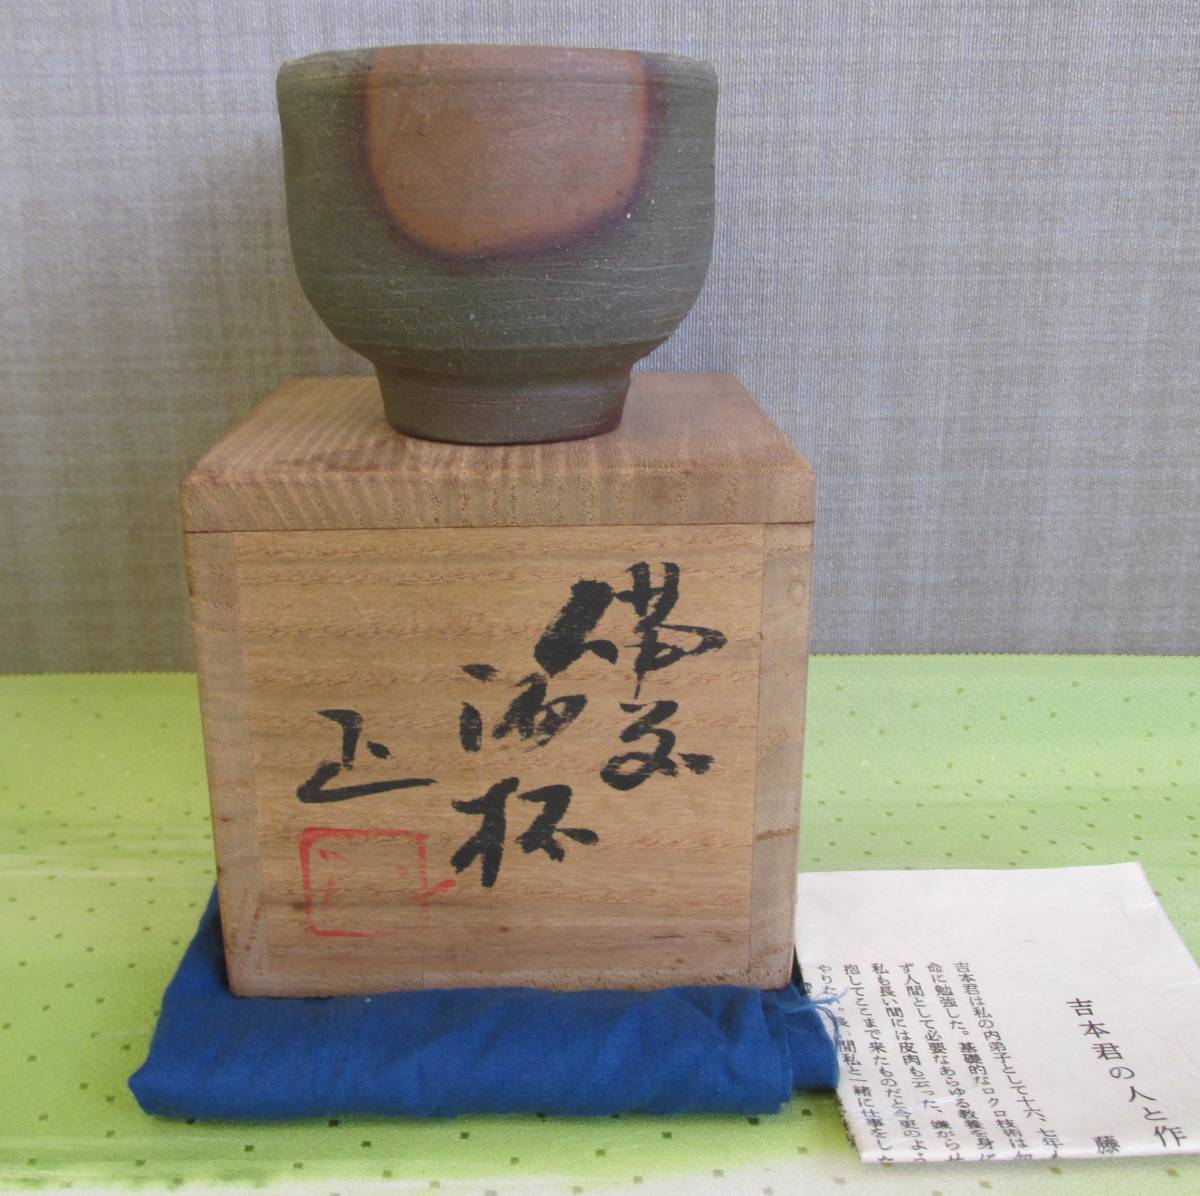 備前
酒杯
正
吉本君の人と作
藤
吉本君は私の内弟子として十六、七年
命に勉強した。基礎的なロクロ技術は勿
ず人間として必要なあらゆる教養を身に
私も長い間には皮肉も云った、嫌がらせ
抱してここまで来たものだと今更のよう
やりた
間私と一緒に仕事をした